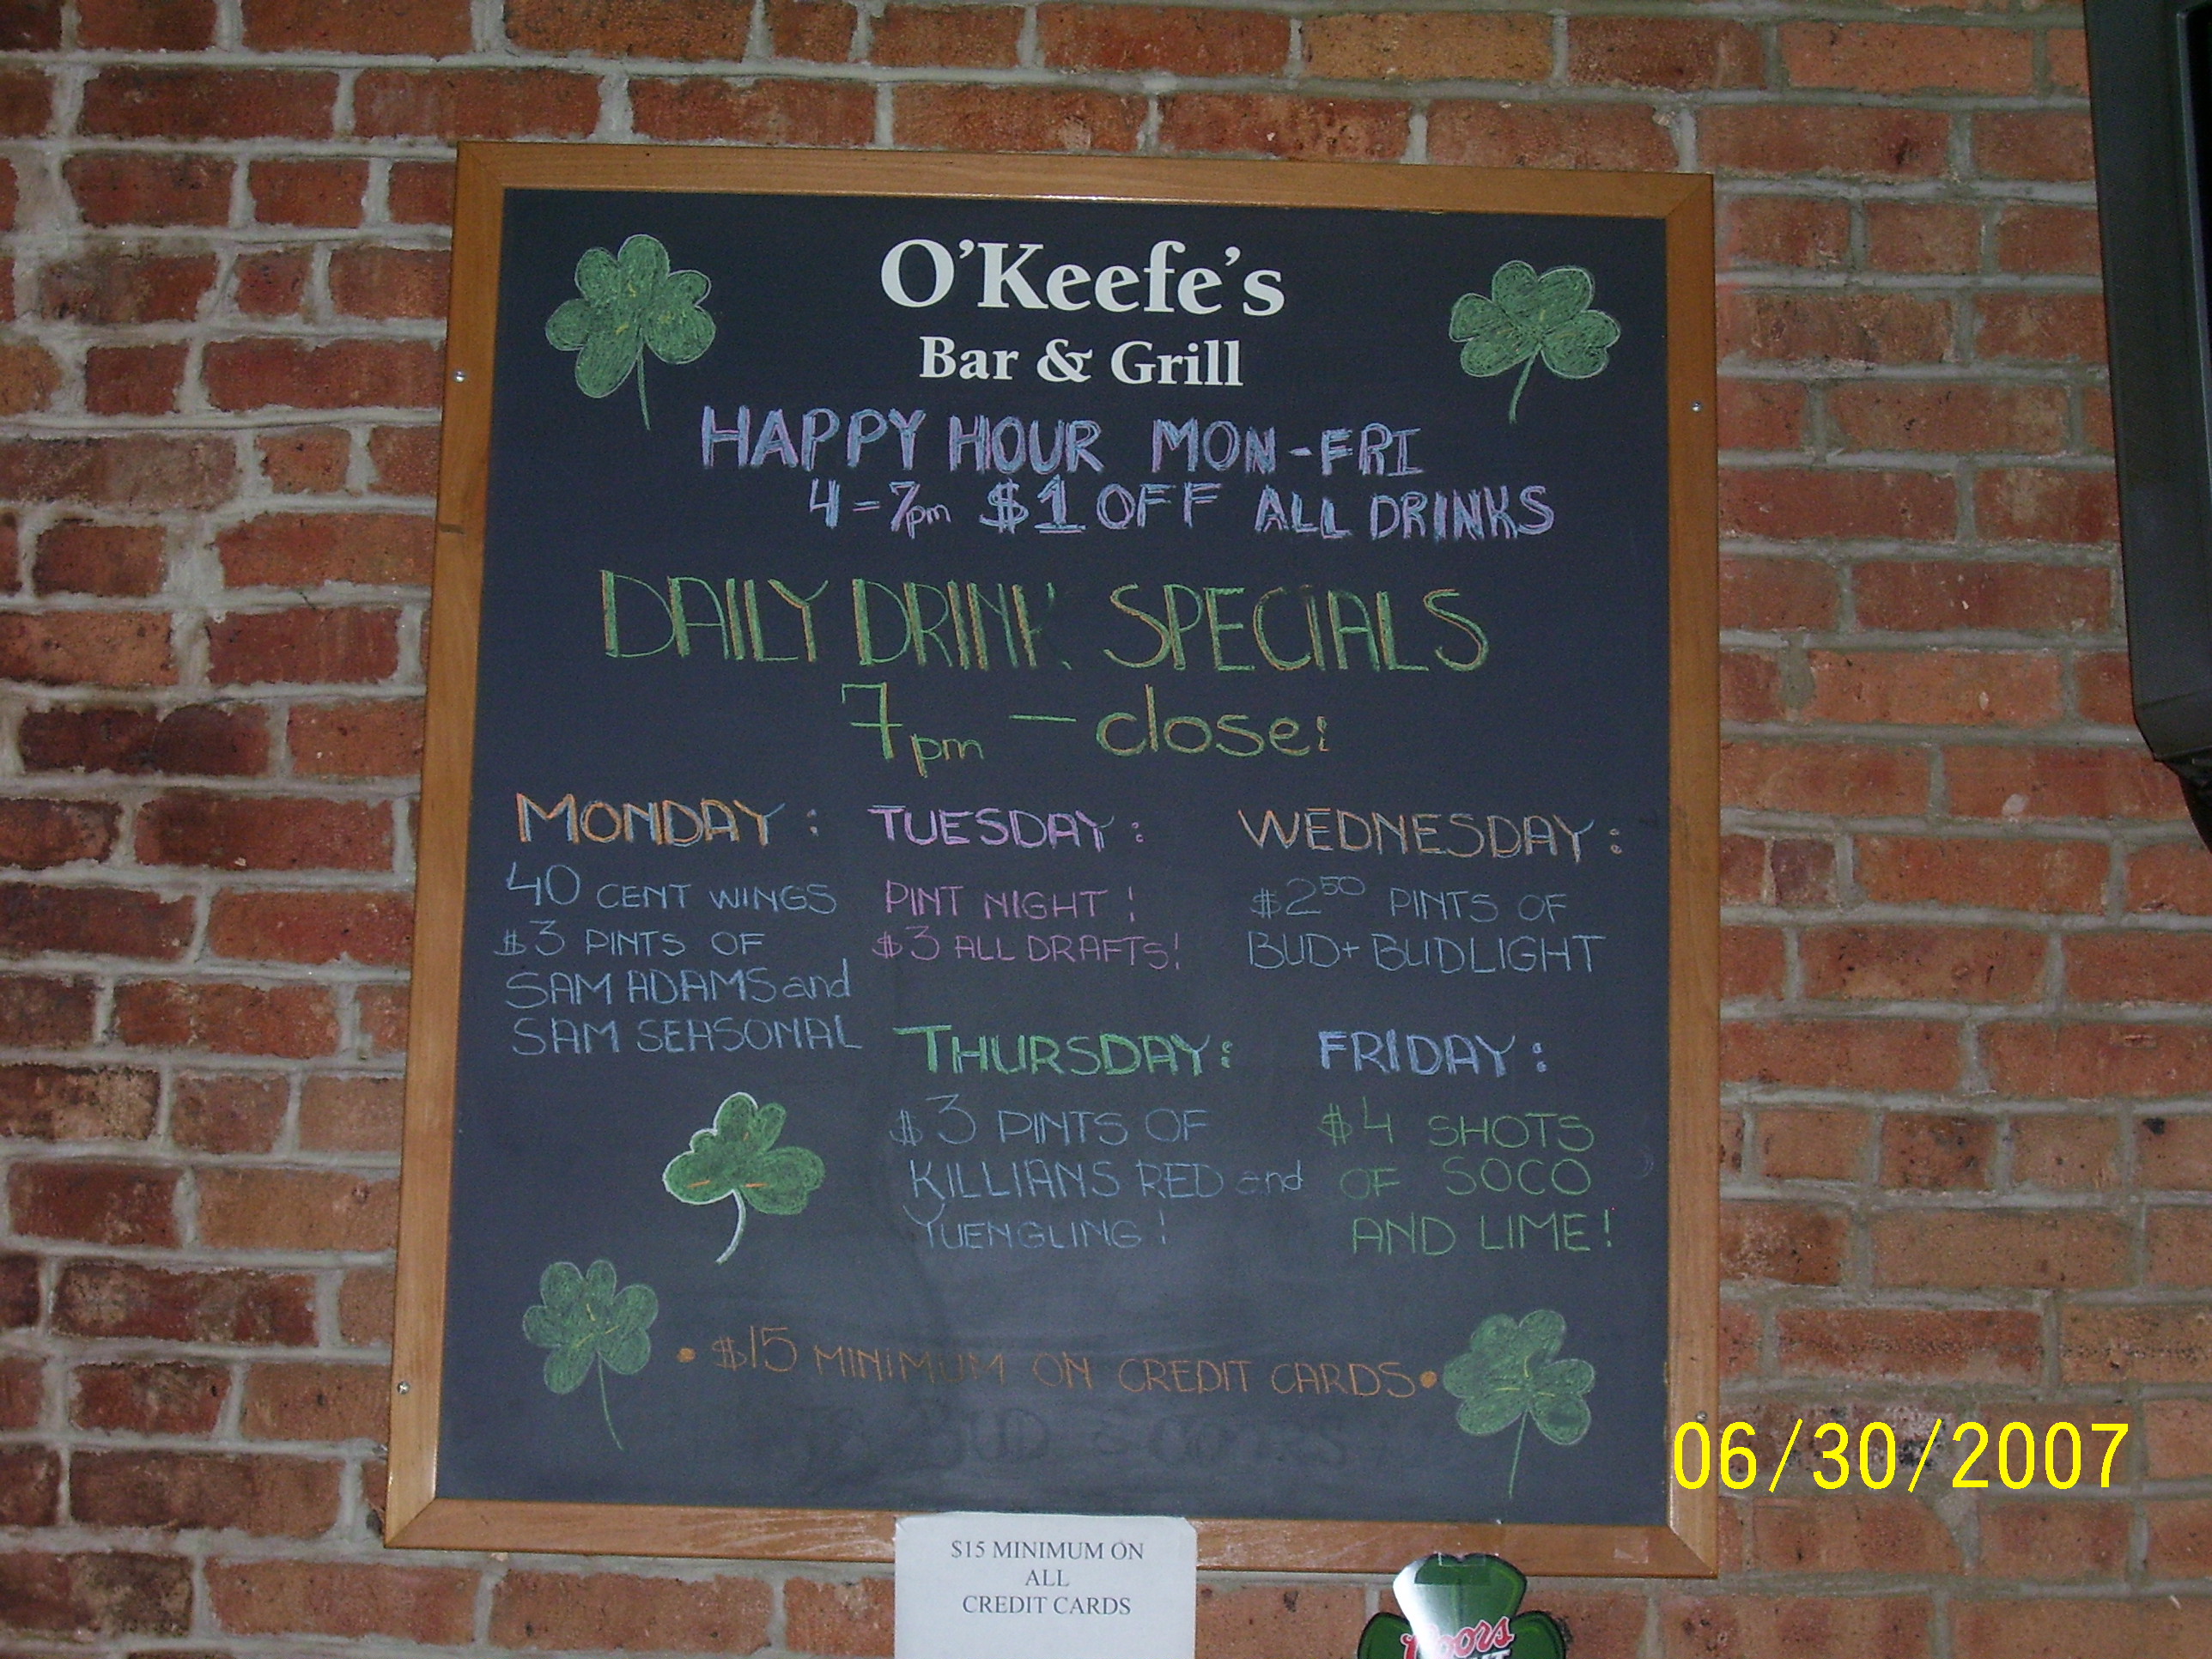 O'Keefe's
Bar & Grill
HAPPY HOUR MON-FRI
4-7pm $1 OFF ALL DRINKS
DAILY DRINK SPECIALS
7pm — close!
MONDAY:
40 CENT WINGS
$3 PINTS OF
SAM ADAMS and
SAM SEASONAL
TUESDAY:
PINT NIGHT!
$3 ALL DRAFTS!
WEDNESDAY:
$2.50 PINTS OF
BUD + BUDLIGHT
THURSDAY:
$3 PINTS OF
KILLIANS RED and
YUENGLING!
FRIDAY:
$4 SHOTS
OF SOCO
AND LIME!
• $15 MINIMUM ON CREDIT CARDS •
06/30/2007
$15 MINIMUM ON
ALL
CREDIT CARDS
Coors